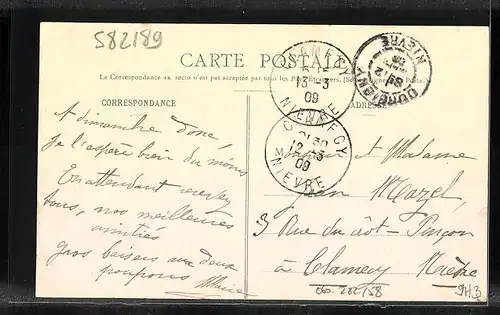 582189
CARTE POSTALE
La Correspondance au recto n'est pas acceptée par tous les Pays Étrangers. (Se
CORRESPONDANCE
ADRESSE
CLAMECY
13-3
09
NIEVRE
CLAMECY
12-3
09
NIEVRE
NIEVRE
A dimanche donc,
Je l'espère bien du moins
En attendant recevez
tous, nos meilleures
amitiés
Gros baisers aux deux
poupons
Monsieur et Madame
Jean Mazel,
3 Rue du
à Clamecy Nièvre
9H3